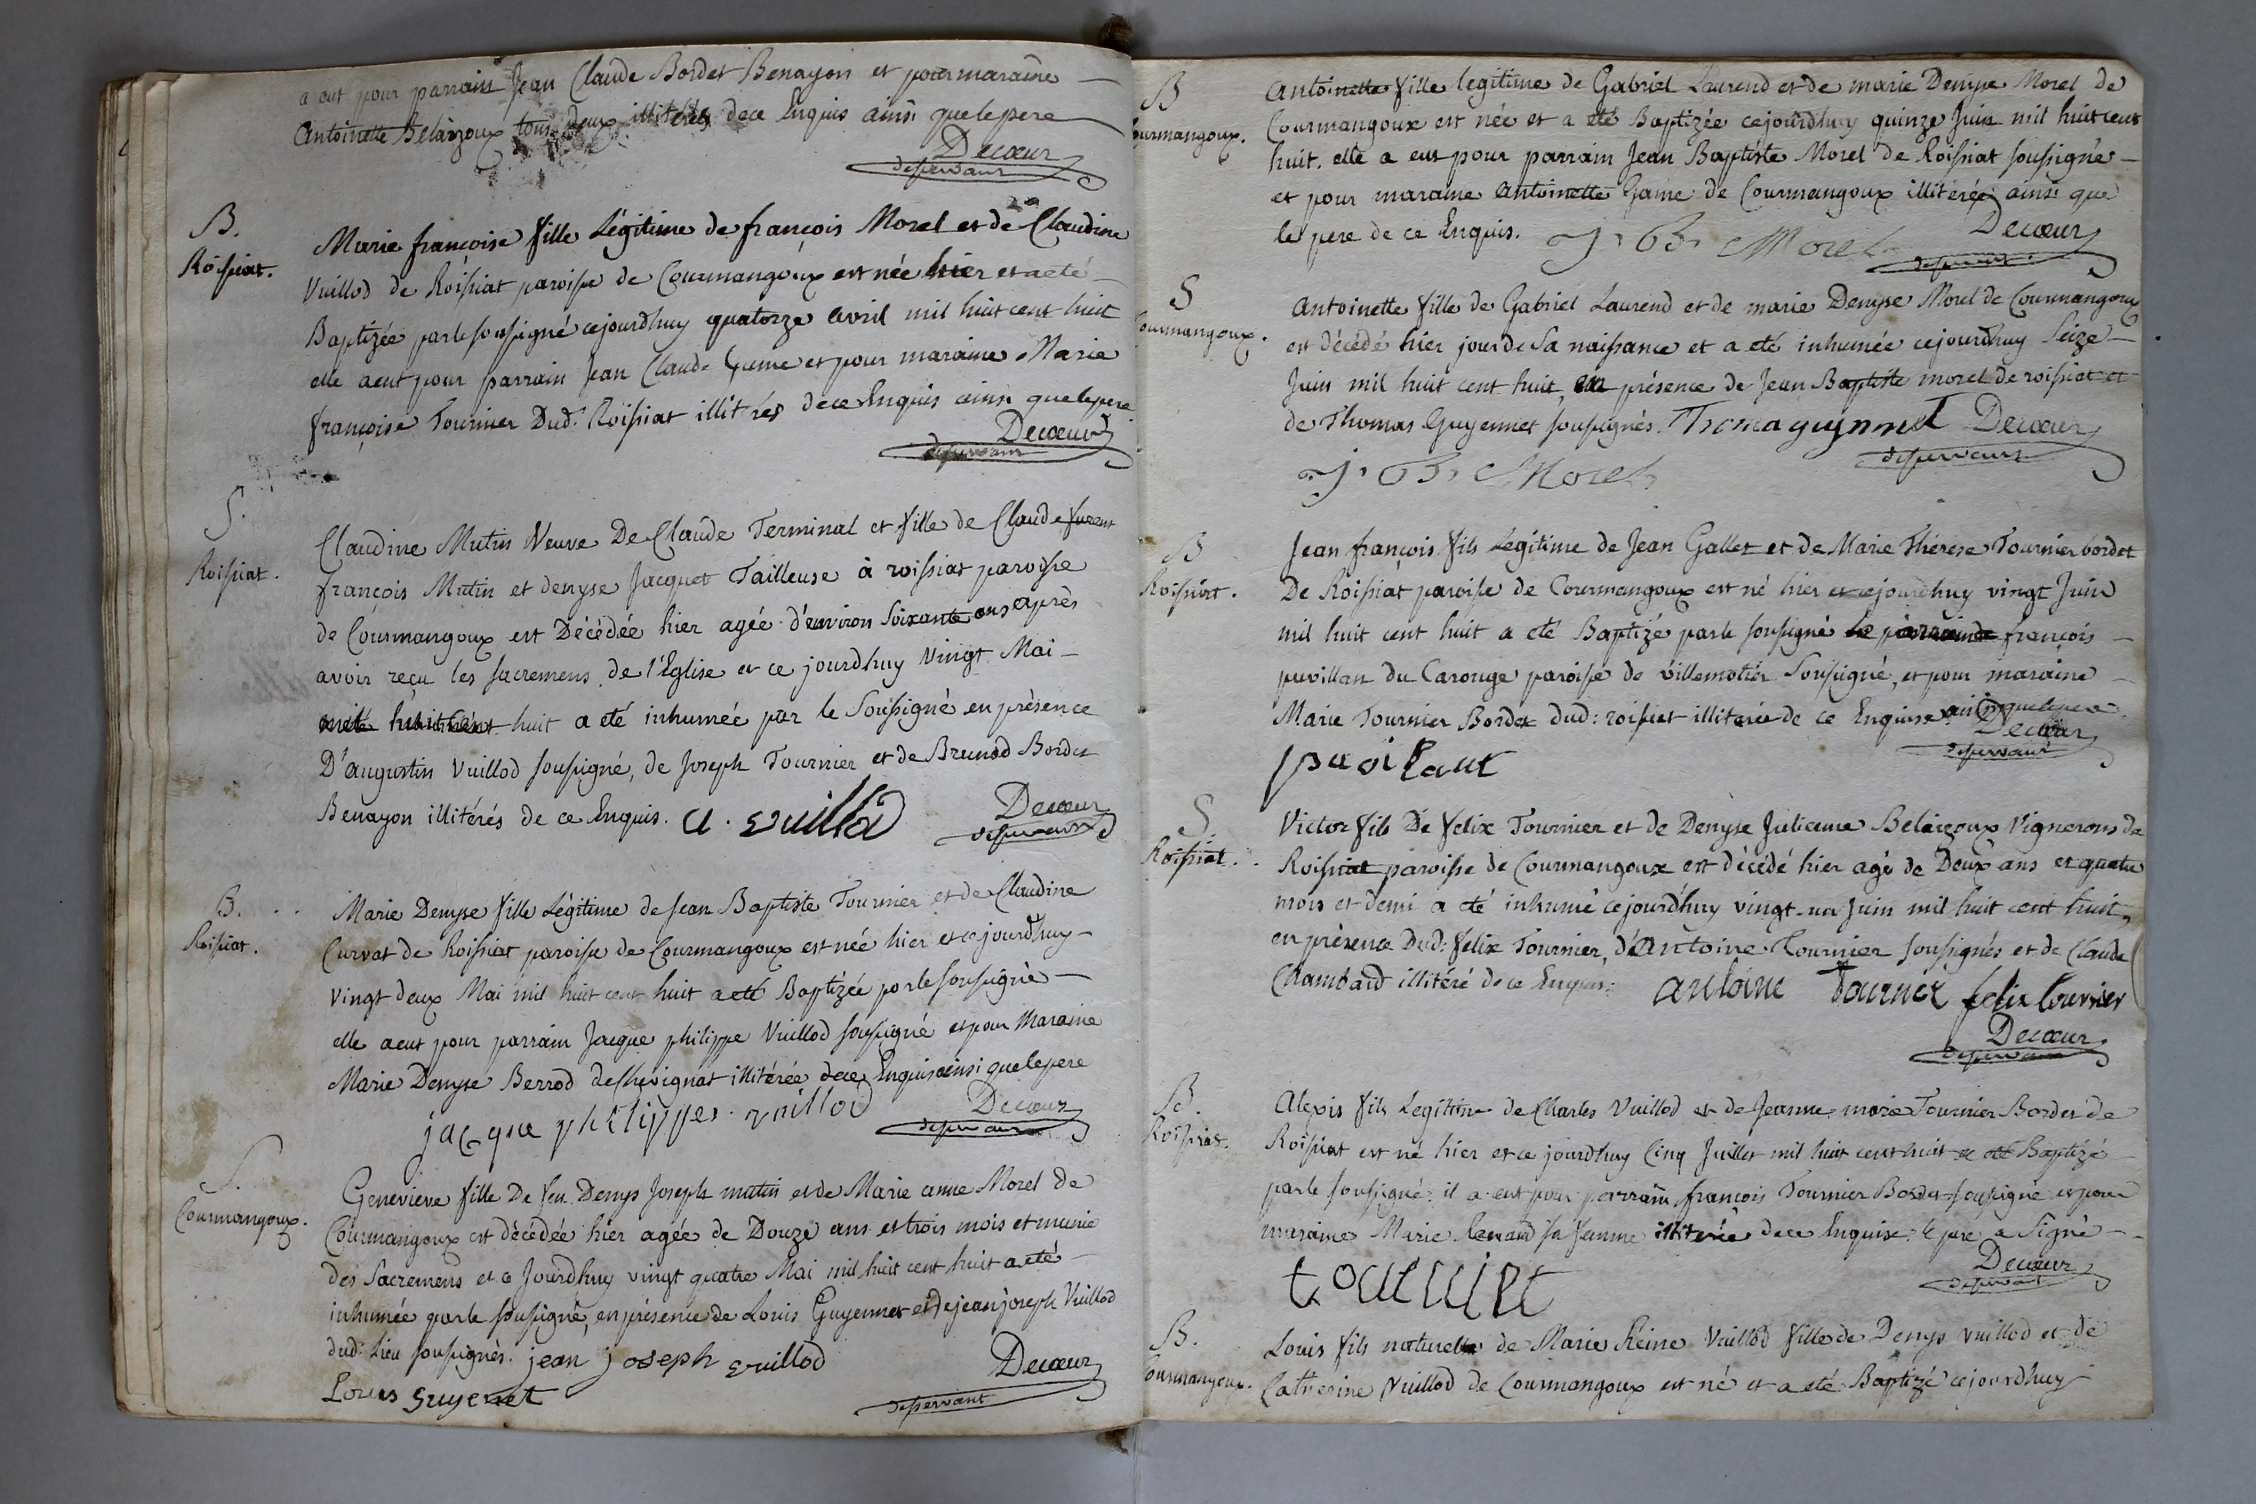 a eut pour parrain Jean Claude Bordet Benayon et pour maraine
antoinette Belaizoux tous deux illitérés de ce Enquis ainsi que le pere
Decœur
desservant
B.
Roissiat.
Marie françoise fille Légitime de françois Morel et de Claudine
Vuillod de Roissiat paroisse de Courmangoux est née hier et a eté
Baptizée par le soussigné cejourdhuy quatorze avril mil huit cent huit
elle a eut pour parrain Jean Claude et pour maraine Marie
françoise Tournier Dud: Roissiat illitérés de ce Enquis ainsi que le pere
Decœur
desservant
S.
Roissiat.
Claudine Mutin Veuve De Claude Terminal et fille de Claude furent
françois Mutin et denyse Jacquet Tailleuse à roissiat paroisse
de Courmangoux est Décédée hier agée d'environ Soixante ans après
avoir reçu les sacremens de l'Eglise et ce jourdhuy Vingt Mai
mil huit cent huit a eté inhumée par le Soussigné en présence
D'augustin Vuillod soussigné, de Joseph Tournier et de Brunod Bordet
Benayon illitérés de ce Enquis. a. vuillod
Decœur
desservant
B.
Roissiat.
Marie Denyse fille Légitime de Jean Baptiste Tournier et de Claudine
Curvat de Roissiat paroisse de Courmangoux est née hier et cejourdhuy
vingt deux Mai mil huit cent huit a eté Baptizée par le soussigné
elle a eut pour parrain Jacque philippe Vuillod soussigné et pour Maraine
Marie Denyse Berrod de Chevignat illitérée de ce Enquis ainsi que le pere
jacque philippes vuillod
Decœur
desservant
S.
Courmangoux.
Genevieve fille De feu Denys Joseph mutin et de Marie anne Morel de
Courmangoux est décédée hier agée de Douze ans et trois mois et munie
des Sacremens et ce Jourdhuy vingt quatre Mai mil huit cent huit a eté
inhumée par le soussigné, en présence de Louis Guyennet et de jean joseph Vuillod
dud: Lieu soussignés. jean joseph vuillod
Decœur
Louis guyenet
desservant
B
Courmangoux.
Antoinette fille legitime de Gabriel Laurend et de marie Denyse Morel de
Courmangoux est née et a eté Baptizée cejourdhuy quinze Juin mil huit cent
huit. elle a eut pour parrain Jean Baptiste Morel de Roissiat soussigné
et pour maraine antoinette Game de Courmangoux illitérée ainsi que
le pere de ce Enquis. J. B. Morel
Decœur
desservant
S
Courmangoux.
Antoinette fille de Gabriel Laurend et de marie Denyse Morel de Courmangoux
est décédé hier jour de Sa naissance et a eté inhumée cejourdhuy Seize
Juin mil huit cent huit, en présence de Jean Baptiste morel de roissiat et
de Thomas Guyennet soussignés. Thoma guynnet Decœur
desservant
J. B. Morel
B
Roissiat.
Jean françois fils Légitime de Jean Gallet et de Marie Thérèse Tournier bordet
De Roissiat paroisse de Courmangoux est né hier et cejourdhuy vingt Juin
mil huit cent huit a eté Baptizé par le soussigné le parrain de françois
puvillan du Carouge paroisse de villemotier Soussigné, et pour maraine
Marie Tournier Bordet dud: roissiat illitérée de ce Enquise ainsi que le pere
Decœur
desservant
puvilant
S.
Roissiat.
Victor fils De felix Tournier et de Denyse Julienne Belaizoux Vignerons de
Roissiat paroisse de Courmangoux est décédé hier agé de Deux ans et quatre
mois et demi a eté inhumé cejourdhuy vingt-un Juin mil huit cent huit,
en présence Dud: felix Tournier, d'antoine Tournier soussignés et de Claude
Chambard illitéré de ce Enquis: antoine Tournier felix tournier
Decœur
desservant
B.
Roissiat.
Alexis fils Legitime de Charles Vuillod et de Jeanne marie Tournier Bordet de
Roissiat est né hier et ce jourdhuy Cinq Juillet mil huit cent huit a eté Baptizé
par le soussigné. il a eut pour parrain françois Tournier Bordet soussigné et pour
maraine Marie Renaud sa femme illitérée de ce Enquise. le pere a Signé
Decœur
desservant
tournier
B.
Courmangoux.
Louis fils naturelle de Marie Reine Vuillod fille de Denys vuillod et de
Catherine Vuillod de Courmangoux est né et a eté Baptizé cejourdhuy